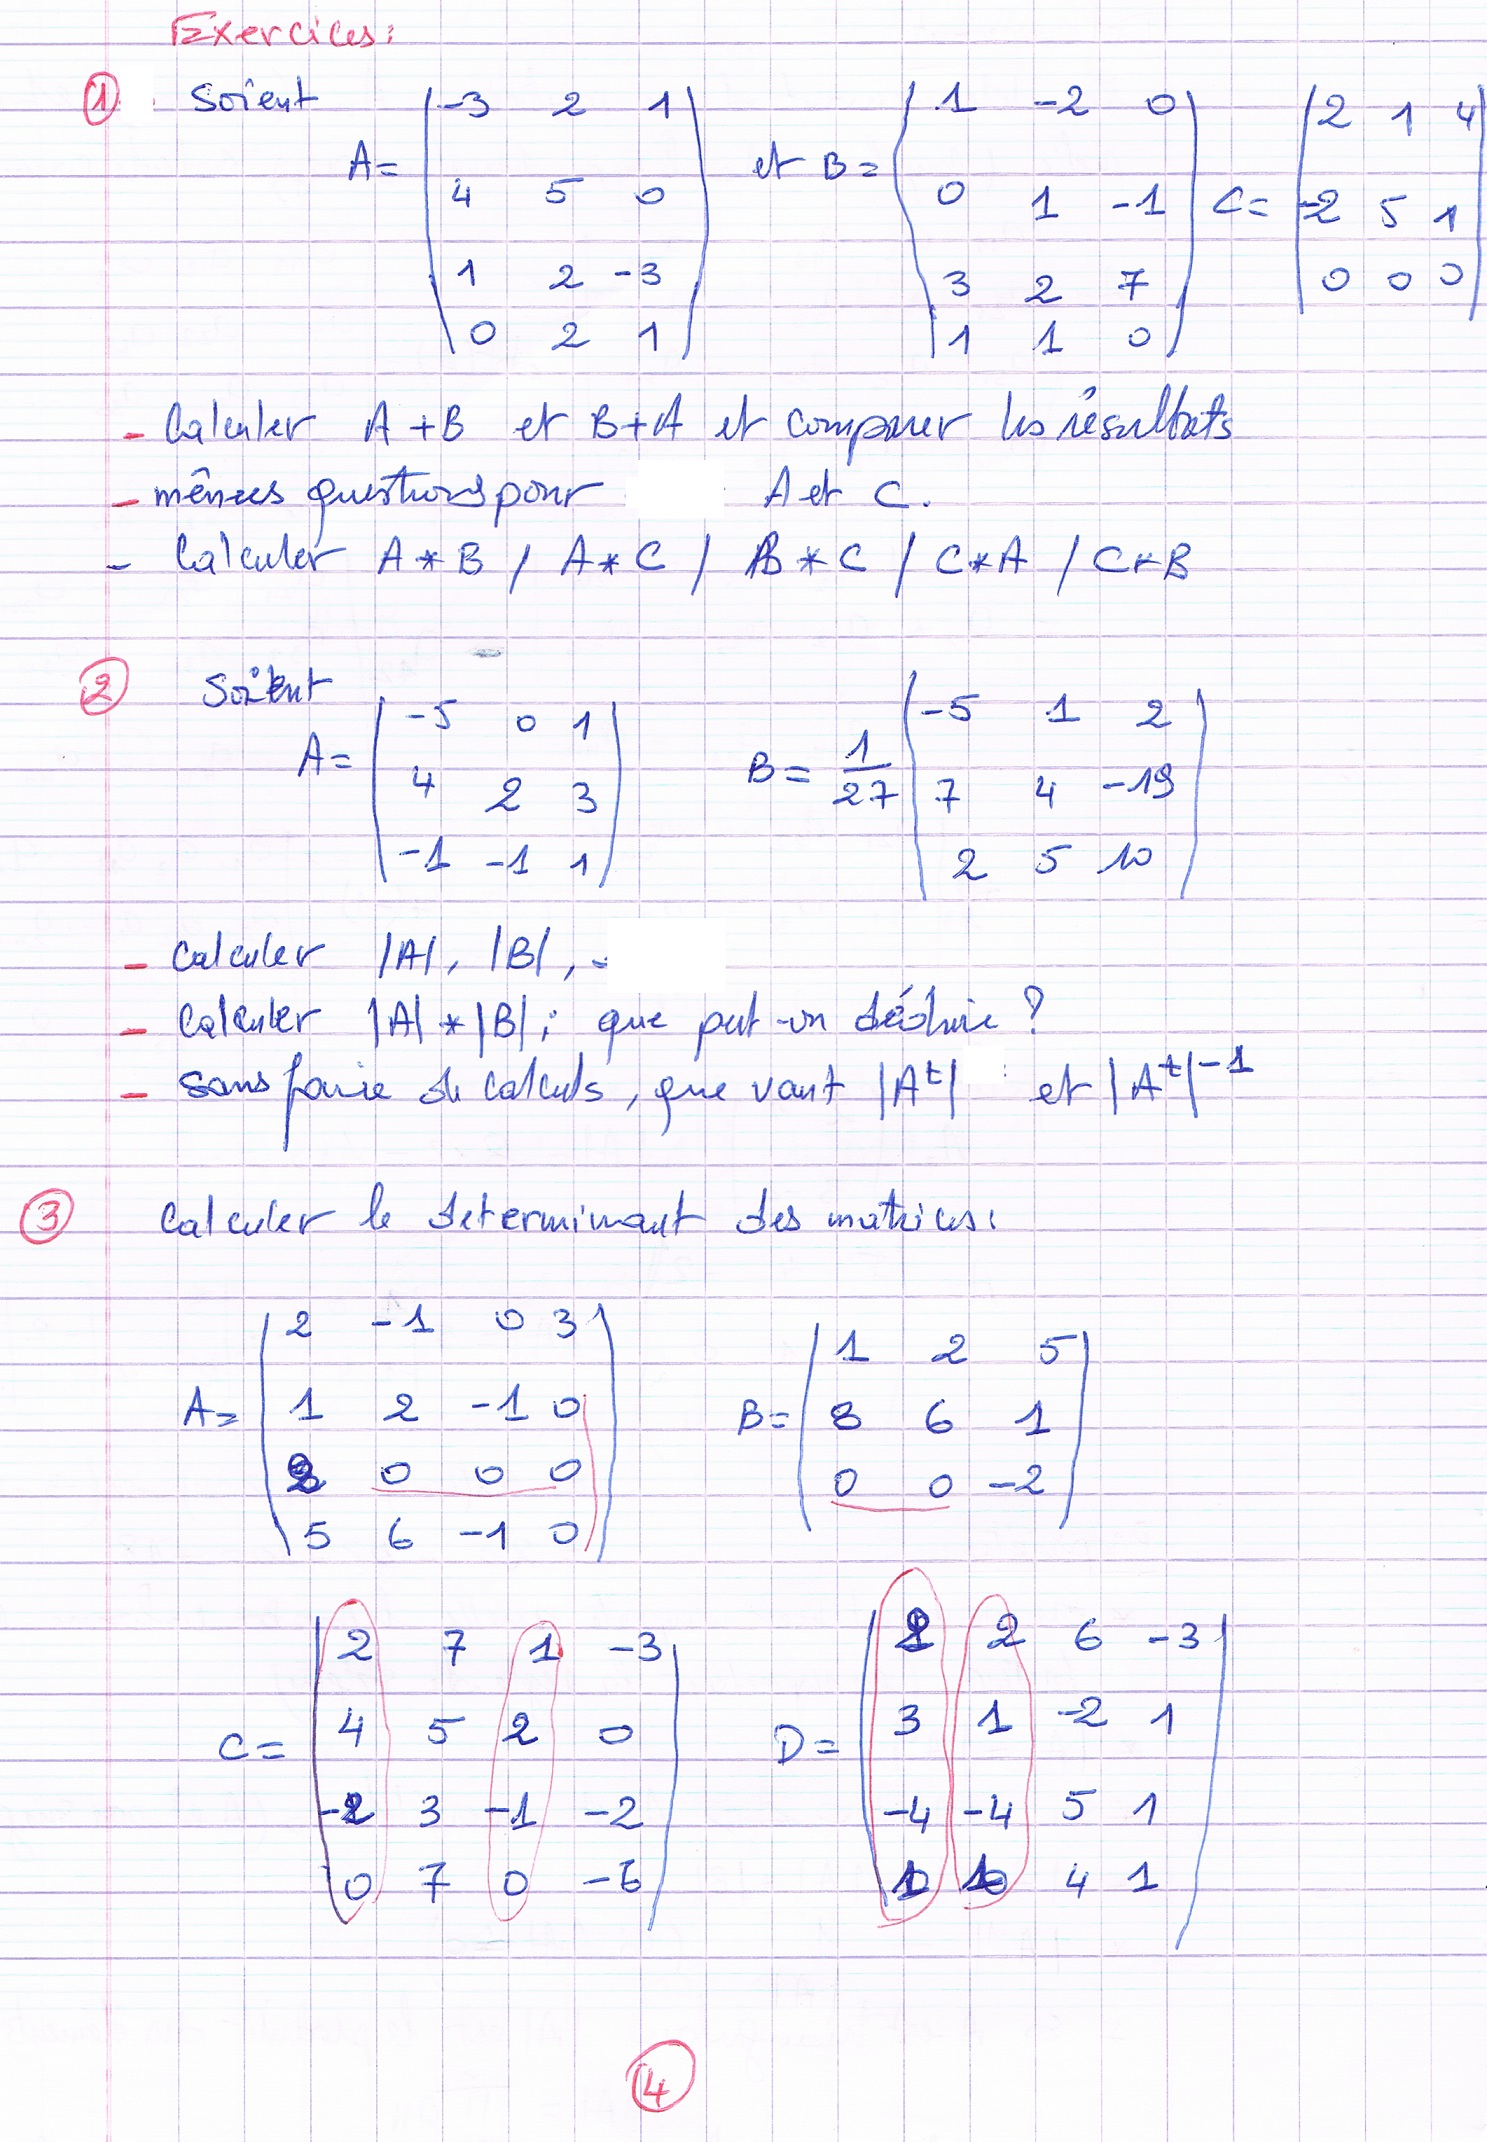 Exercices:
① Soient
A= (-3 2 1
4 5 0
1 2 -3
0 2 1)
et B= (1 -2 0
0 1 -1
3 2 7
1 1 0)
C= (2 1 4
-2 5 1
0 0 0)
- Calculer A+B et B+A et comparer les résultats
- mêmes questions pour A et C.
- Calculer A*B / A*C / B*C / C*A / C*B
② Soient
A= (-5 0 1
4 2 3
-1 -1 1)
B= 1/27 (-5 1 2
7 4 -19
2 5 10)
- Calculer |A|, |B|,
- Calculer |A| * |B|; que peut-on déduire ?
- sans faire de calculs, que vaut |Aᵗ| et |Aᵗ|⁻¹
③ Calculer le determinant des matrices:
A= (2 -1 0 3
1 2 -1 0
2 0 0 0
5 6 -1 0)
B= (1 2 5
8 6 1
0 0 -2)
C= (2 7 1 -3
4 5 2 0
-2 3 -1 -2
0 7 0 -6)
D= (2 6 -3
3 1 -2 1
-4 -4 5 1
4 1)
14